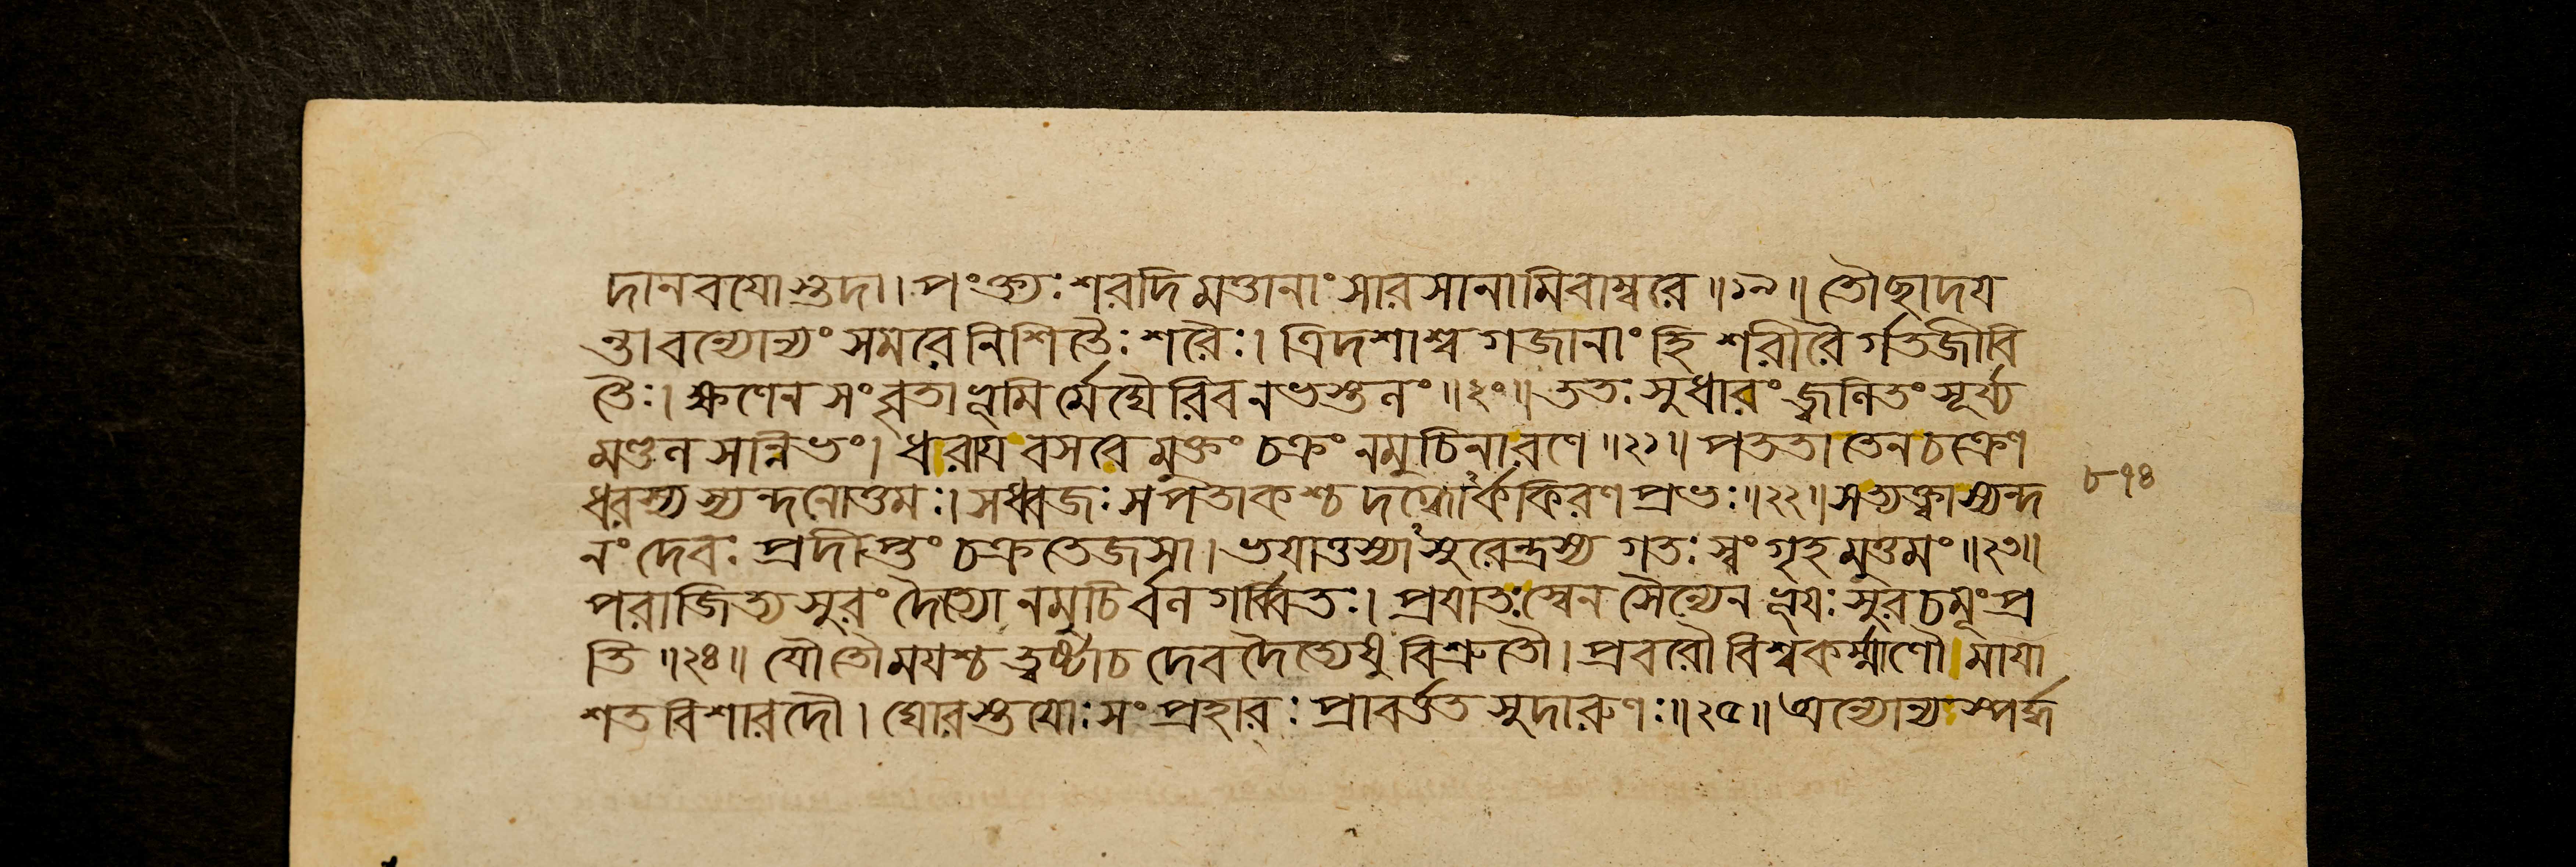 দানবযোস্তদা। পংক্ত্যঃ শরদিমত্তানাং সারসানামিবাম্বরে॥১৯॥ তৌছাদয
ন্তাবন্যোন্যং সমরেনিশিতৈঃ শরৈঃ। ত্রিদশাশ্বগজানাং হি শরীরৈর্গতজীবি
তৈঃ। ক্ষণেন সংবৃতা ভূমির্মেঘৈরিবনভস্তলং॥২০॥ ততঃ সুধারং জ্বলিতং সূর্য্য
মণ্ডলসন্নিভং। ধরাযবসরে মুক্তং চক্রং নমুচিনারণে॥২১॥ পততা তেনচক্রেণ
ধরস্যস্যন্দনোত্তমঃ। সধ্বজঃ সপতাকশ্চ দগ্ধোঽর্ককিরণপ্রভঃ॥২২॥ সত্যক্ত্বাস্যন্দ
নং দেবঃ প্রদীপ্তং চক্রতেজসা। ভযাত্তস্যাঽসুরেন্দ্রস্য গতঃ স্বংগৃহমুত্তমং॥২৩॥
পরাজিত্যসুরং দৈত্যো নমুচির্বলগর্ব্বিতঃ। প্রযাতঃ স্বেন সৈন্যেন ভূযঃ সুরচমূং প্র
তি॥২৪॥ যৌতৌমযশ্চ ত্বষ্টাচ দেবদৈত্যেষু বিশ্রুতৌ। প্রবরৌ বিশ্বকর্ম্মাণৌ মাযা
শতবিশারদৌ। ঘোরস্তযোঃ সংপ্রহারঃ প্রাবর্ত্তত সুদারুণঃ॥২৫॥ অন্যোন্যস্পর্দ্ধ
৮৭৪